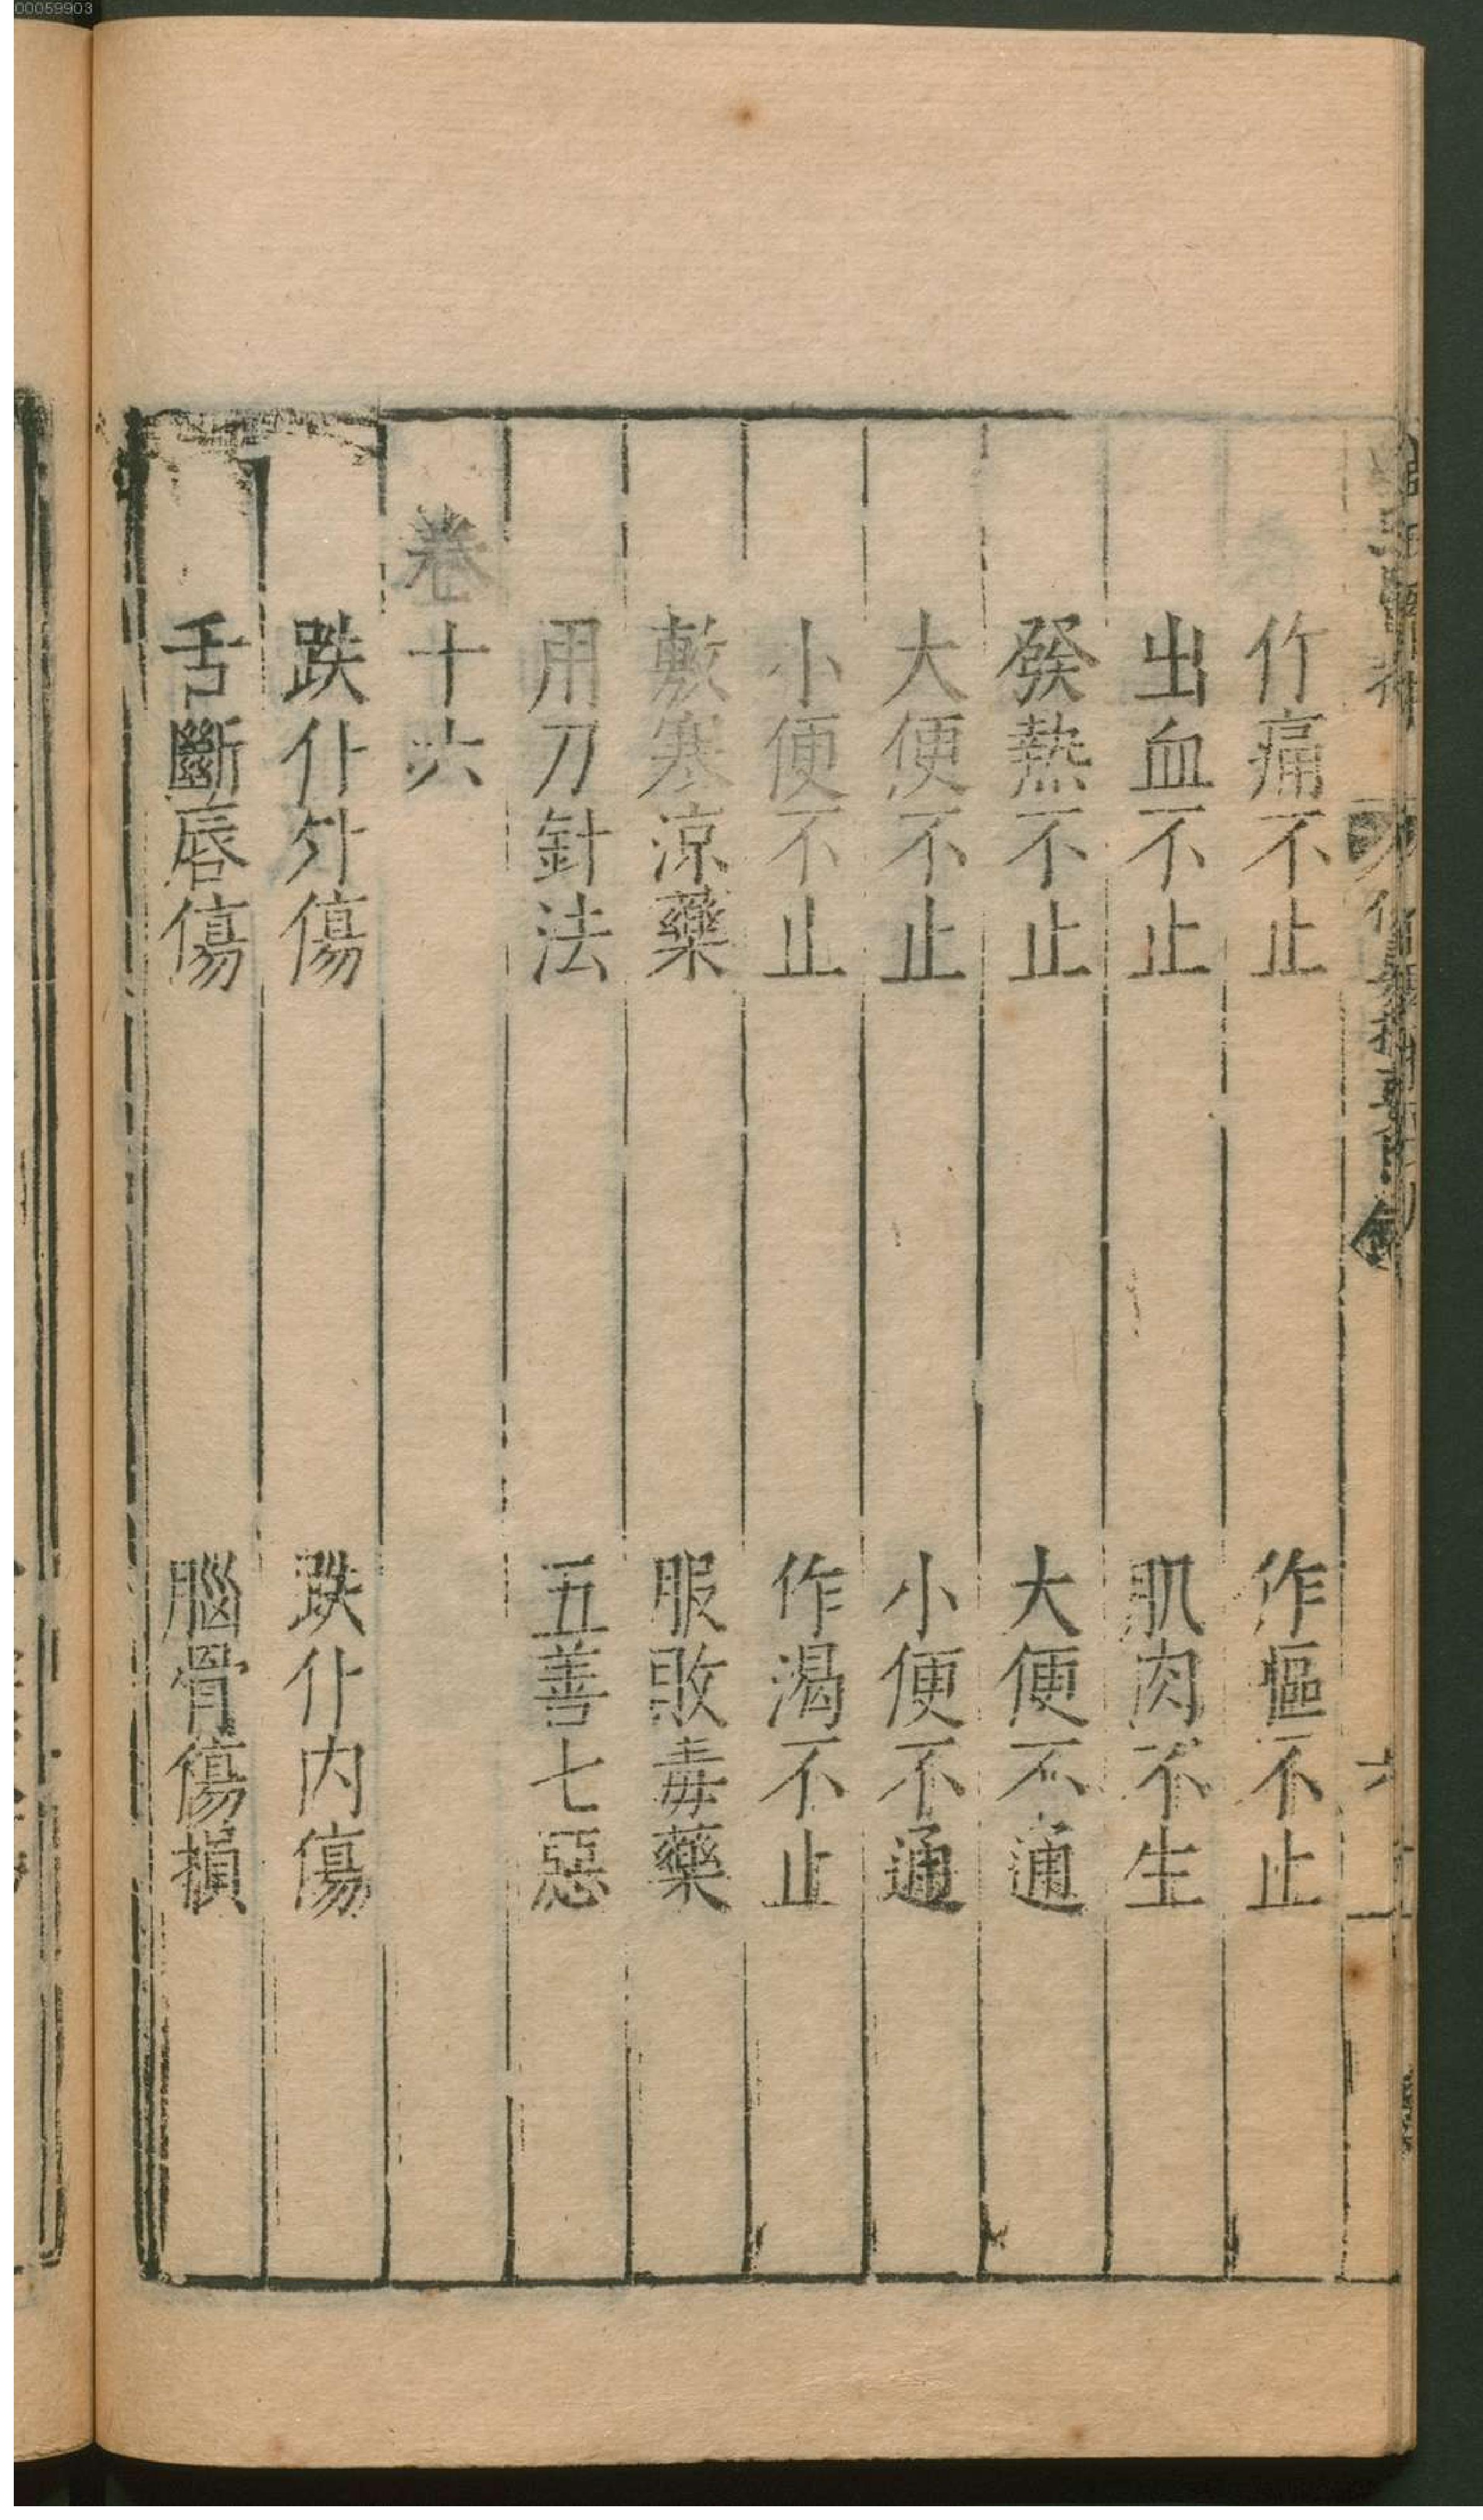 00059903
作痛不止　作嘔不止
出血不止　肌肉不生
發熱不止　大便不通
大便不止　小便不通
小便不止　作渴不止
敷寒涼藥　服敗毒藥
用刀針法　五善七惡
卷十六
跌仆外傷　跌仆内傷
舌斷唇傷　腦骨傷損